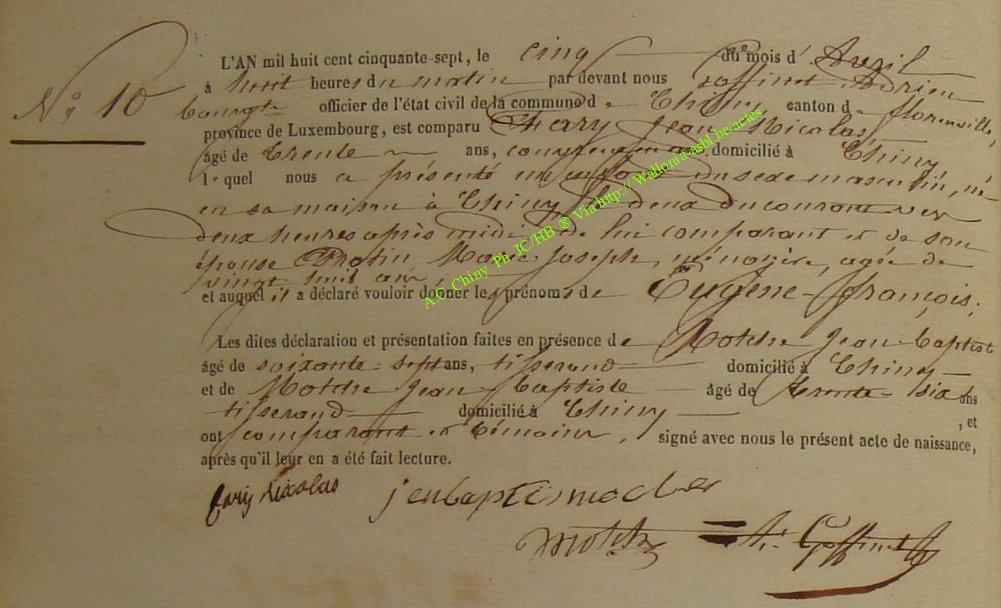 N° 10
L'AN mil huit cent cinquante-sept, le cinq du mois d'Avril
à huit heures du matin par devant nous Goffinet Adrien
officier de l'état civil de la commune de Chiny, canton de florenville,
province de Luxembourg, est comparu Jean Nicolas,
âgé de trente ans, domicilié à Chiny
lequel nous a présenté un enfant du sexe masculin, né
en sa maison à Chiny, le deux du courant vers
deux heures après midi de lui comparant et de son
épouse Marie Joseph, ménagère, agée de
vingt huit ans,
et auquel il a déclaré vouloir donner les prénoms de Eugène-françois;
Les dites déclaration et présentation faites en présence de Jean Baptist
âgé de soixante-sept ans, tisserand domicilié à Chiny
et de Jean Baptiste âgé de trente-six ans
tisserand domicilié à Chiny , et
ont comparant et témoins, signé avec nous le présent acte de naissance,
après qu'il leur en a été fait lecture.
Nicolas
A. Goffinet
Chiny Ph. JC/HB ® Via http://Wallonia-asbl.be/actes.